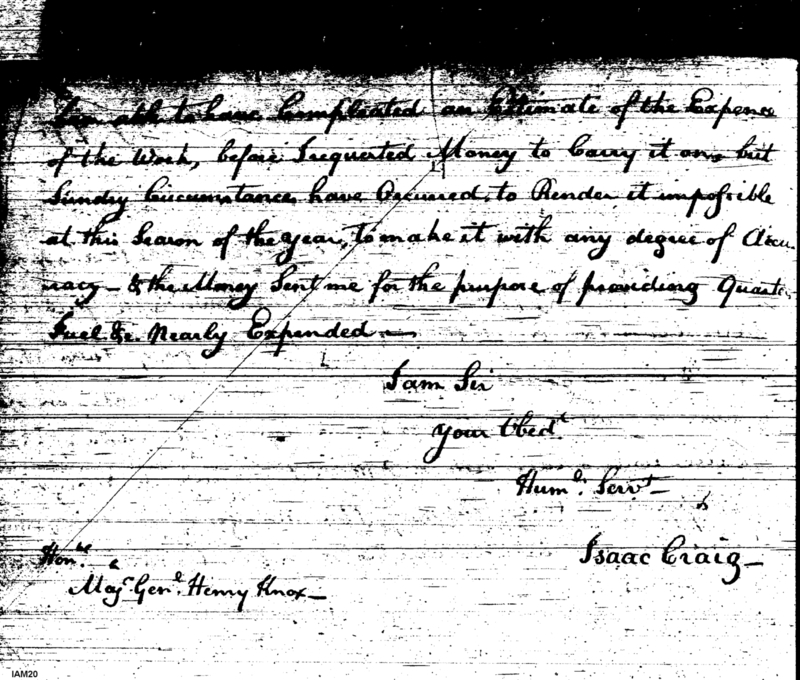 able to have Compleated an Estimate of the Expence
of the Work, before I requested Money to Carry it on, but
Sundry Circumstances have Occurred, to Render it impossible
at this Season of the year, to make it with any degree of Accu
racy – & the Money Sent me for the purpose of providing Quarts
Fuel &c. Nearly Expended —
I am Sir
your Obedt.
Humle. Servt —
Isaac Craig —
Honble
Majr Genl. Henry Knox —
IAM20